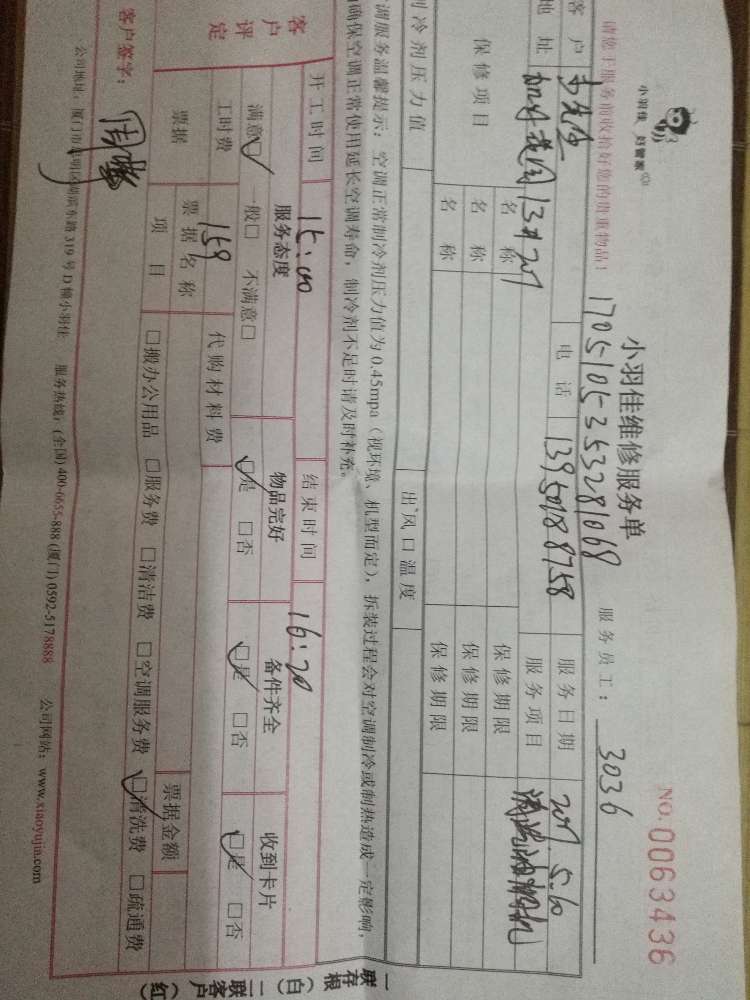 小羽佳 好管家
请您于服务前收拾好您的贵重物品！
小羽佳维修服务单
NO. 0063436
170510535328​1068
服务员工： 3036
客户 电话 13950188758 服务日期
地址 13# 207 服务项目
保修项目 名称 保修期限
名称 保修期限
名称 保修期限
制冷剂压力值 出风口温度
调服务温馨提示：空调正常制冷剂压力值为0.45mpa（视环境、机型而定），拆装过程会对空调制冷或制热造成一定影响，
确保空调正常使用延长空调寿命，制冷剂不足时请及时补充。
开工时间 15:00 结束时间 16:20
客户评定 服务态度 物品完好 备件齐全 收到卡片
满意□ 一般□ 不满意□ □是 □否 □是 □否 □是 □否
工时费 159 代购材料费
票据 票据名称 票据金额
项目 □搬办公用品 □服务费 □清洁费 □空调服务费 □清洗费 □疏通费
客户签字：
公司地址：厦门市思明区湖滨东路319号D幢小羽佳 服务热线：(全国)400-6655-888 (厦门)0592-5178888 公司网站：www.xiaoyujia.com
一联存根（白） 二联客户（红）